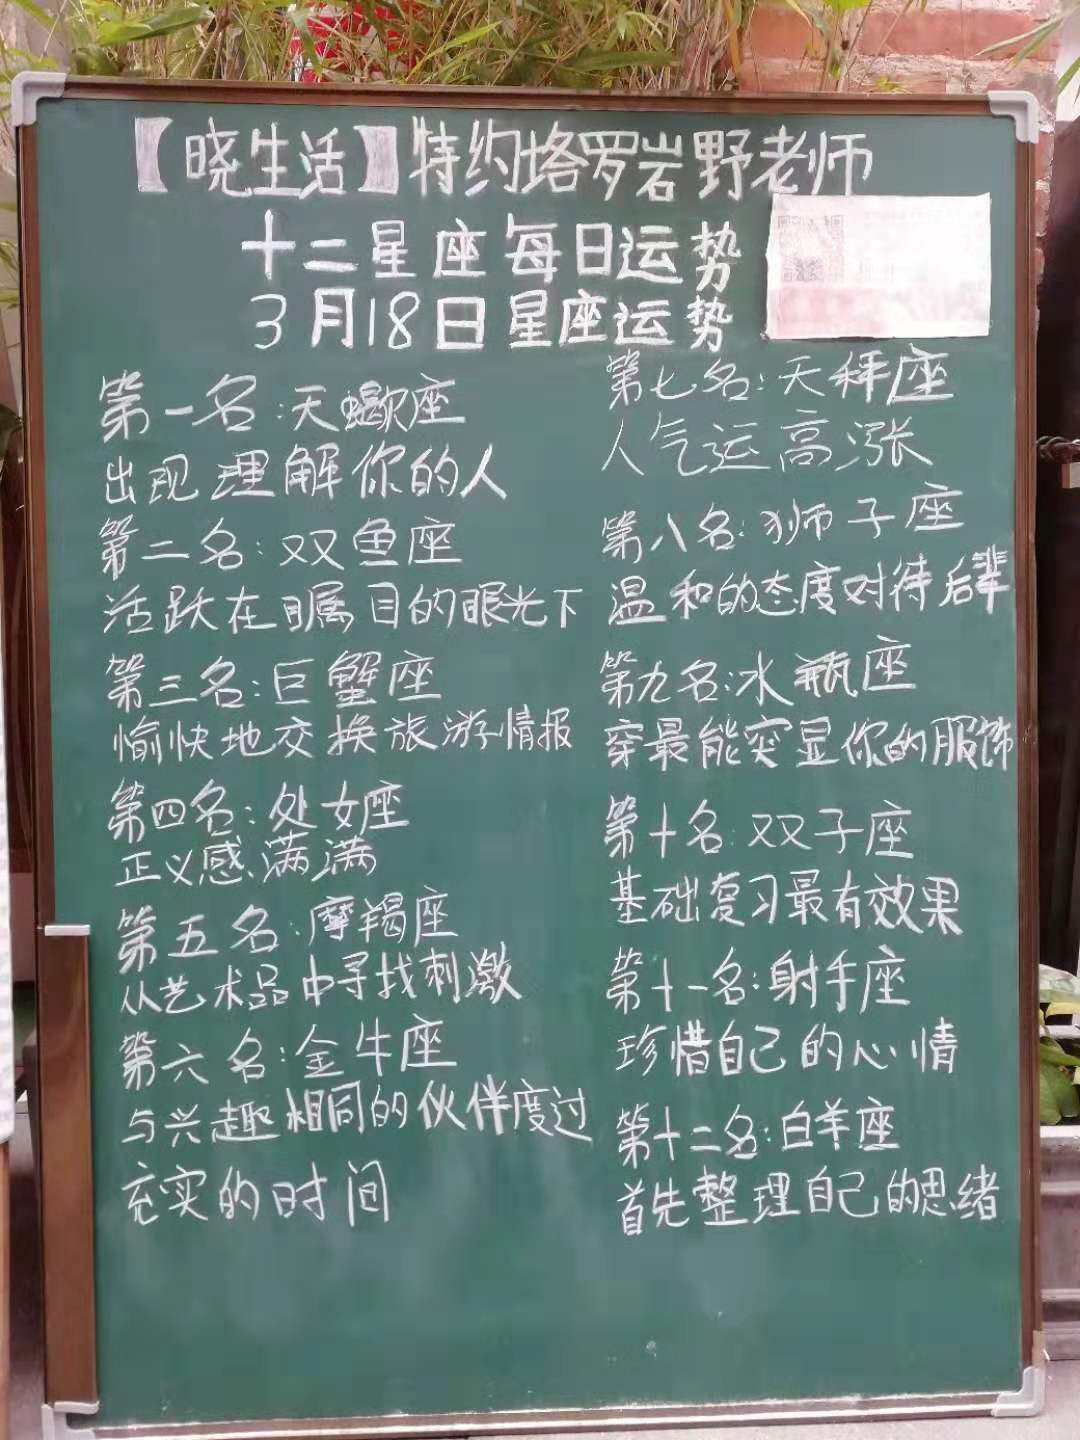 【晓生活】特约塔罗岩野老师
十二星座每日运势
3月18日星座运势
第一名:天蝎座
出现理解你的人
第二名:双鱼座
活跃在瞩目的眼光下
第三名:巨蟹座
愉快地交换旅游情报
第四名:处女座
正义感满满
第五名:摩羯座
从艺术品中寻找刺激
第六名:金牛座
与兴趣相同的伙伴度过
充实的时间
第七名:天秤座
人气运高涨
第八名:狮子座
温和的态度对待后辈
第九名:水瓶座
穿最能突显你的服饰
第十名:双子座
基础复习最有效果
第十一名:射手座
珍惜自己的心情
第十二名:白羊座
首先整理自己的思绪